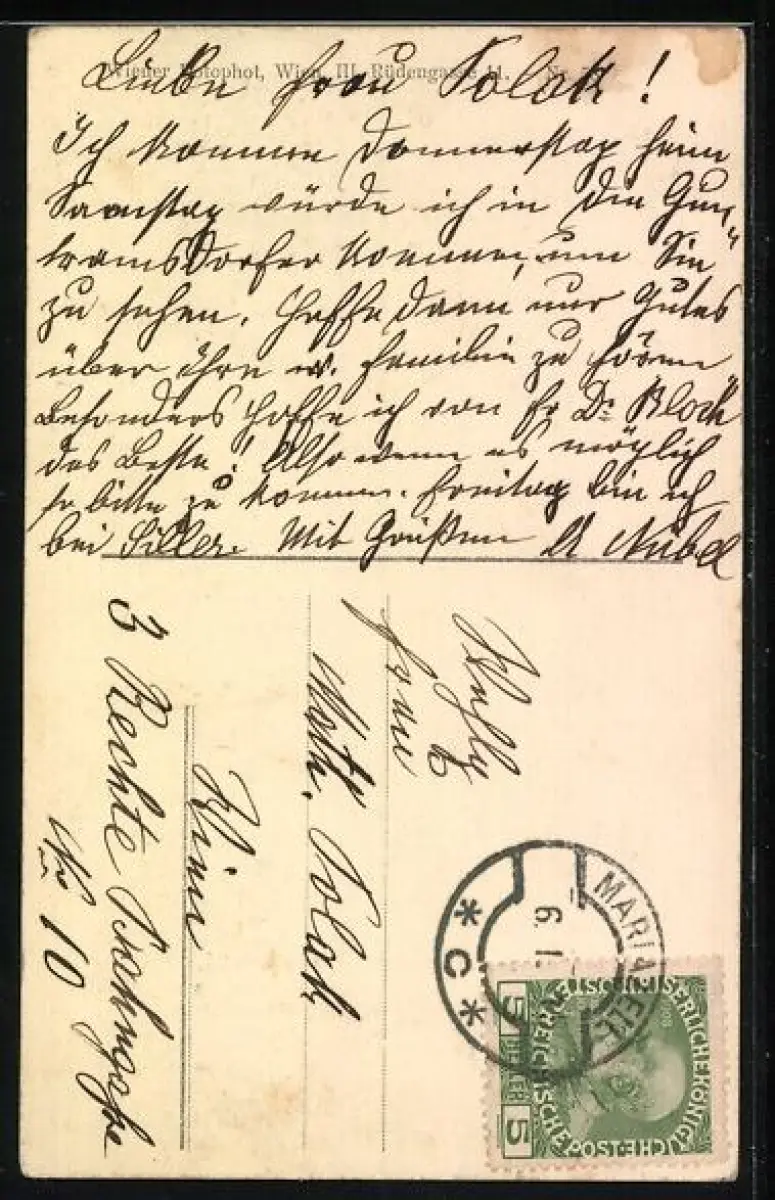 Wiener Rotophot, Wien, III. Rüdengasse 11. Nr.
Liebe Frau Polak!
Ich komme Donnerstag heim
Samstag würde ich in die Gun„
tramsdorfer kommen, um Sie
zu sehen. Hoffe dann nur Gutes
über Ihre w. Familie zu hören
Besonders hoffe ich von Fr Dr. Bloch
das Beste! Also wenn es möglich
so bitte zu kommen. Freitag bin ich
bei Siller. Mit Grüßen A Nübel
Frau
Math. Polak
Wien
3 Rechte Bahngasse
Nr 10
MARIAZELL
6. I.
* C *
KAISERLICHKÖNIGLICHE
ÖSTERREICHISCHE POST
1908
5 HELLER 5